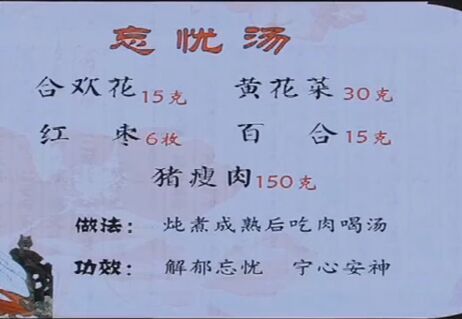 忘忧汤
合欢花15克 黄花菜30克
红枣6枚 百合15克
猪瘦肉150克
做法： 炖煮成熟后吃肉喝汤
功效： 解郁忘忧 宁心安神